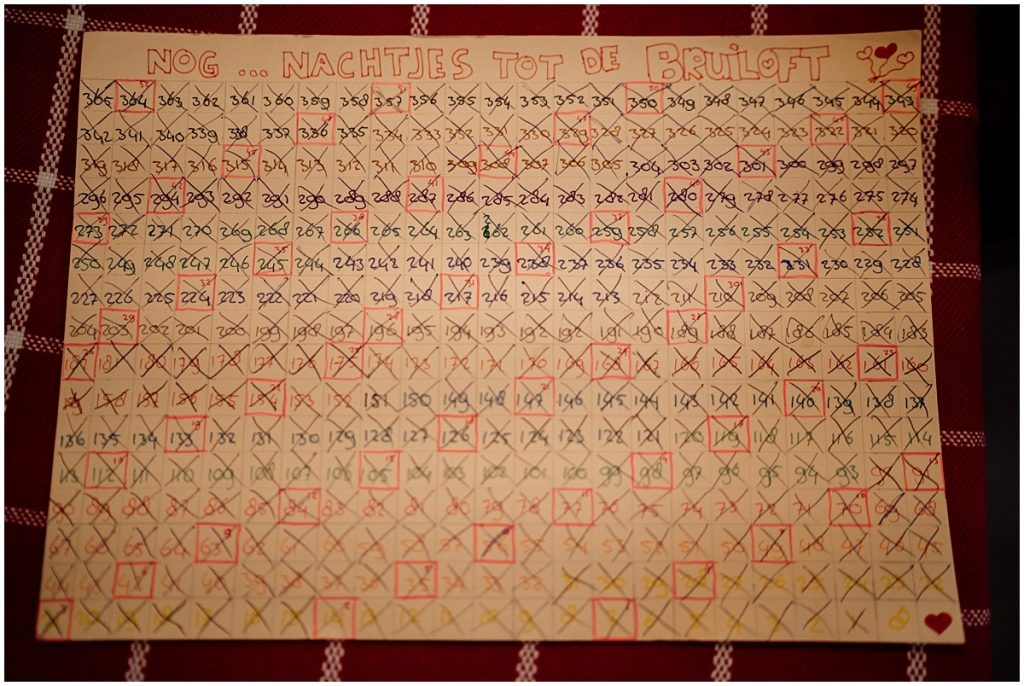 NOG ... NACHTJES TOT DE BRUILOFT
365 364 363 362 361 360 359 358 357 356 355 354 353 352 351 350 349 348 347 346 345 344 343
342 341 340 339 338 337 336 335 334 333 332 331 330 329 328 327 326 325 324 323 322 321 320
319 318 317 316 315 314 313 312 311 310 309 308 307 306 305 304 303 302 301 300 299 298 297
296 295 294 293 292 291 290 289 288 287 286 285 284 283 282 281 280 279 278 277 276 275 274
273 272 271 270 269 268 267 266 265 264 263 262 261 260 259 258 257 256 255 254 253 252 251
250 249 248 247 246 245 244 243 242 241 240 239 238 237 236 235 234 233 232 231 230 229 228
227 226 225 224 223 222 221 220 219 218 217 216 215 214 213 212 211 210 209 208 207 206 205
204 203 202 201 200 199 198 197 196 195 194 193 192 192 191 190 189 188 187 186 185 184 183
182 181 180 179 178 177 175 174 173 172 171 170 169 168 167 166 165 164 163 162 161 160
159 158 157 156 155 154 153 152 151 150 149 148 147 146 145 144 143 142 141 140 139 138 137
136 135 134 133 132 131 130 129 128 127 126 125 124 123 122 121 120 119 118 117 116 115 114
113 112 111 110 109 108 107 106 105 104 103 102 101 100 99 98 97 96 95 94 93 92 91
90 89 88 87 86 85 84 83 82 81 80 79 78 77 76 75 74 73 72 71 70 69 68
67 66 65 64 63 62 61 60 59 58 57 55 54 53 52 51 50 49 48 47 46 45
44 43 42 41 40 39 38 37 36 35 34 33 32 30 29 28